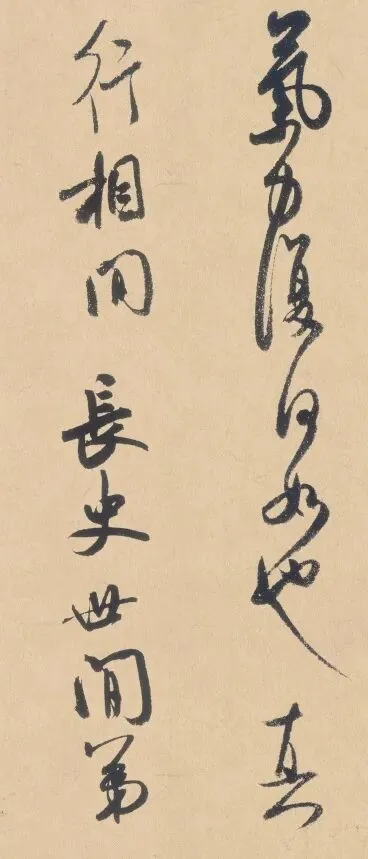 氣力復何如也真
行相間長史世間第